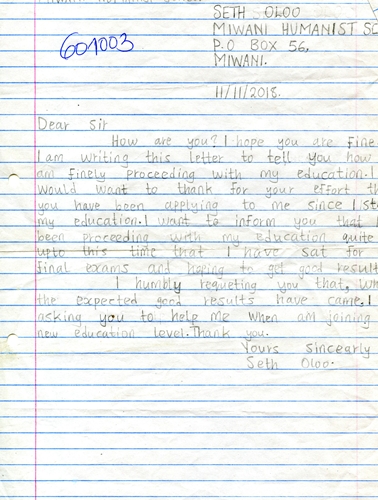 SETH OLOO
MIWANI HUMANIST SC
601003
P.O BOX 56,
MIWANI.
11/11/2018.
Dear Sir
How are you? I hope you are fine
I am writing this letter to tell you how
am finely proceeding with my education. I
would want to thank for your effort th
you have been applying to me since I st
my education. I want to inform you that
been proceeding with my education quite
upto this time that I have sat for
final exams and hoping to get good result
I humbly requeting you that, wh
the expected good results have came. I
asking you to help me when am joining
new education level. Thank you.
Yours sincearly
Seth Oloo.